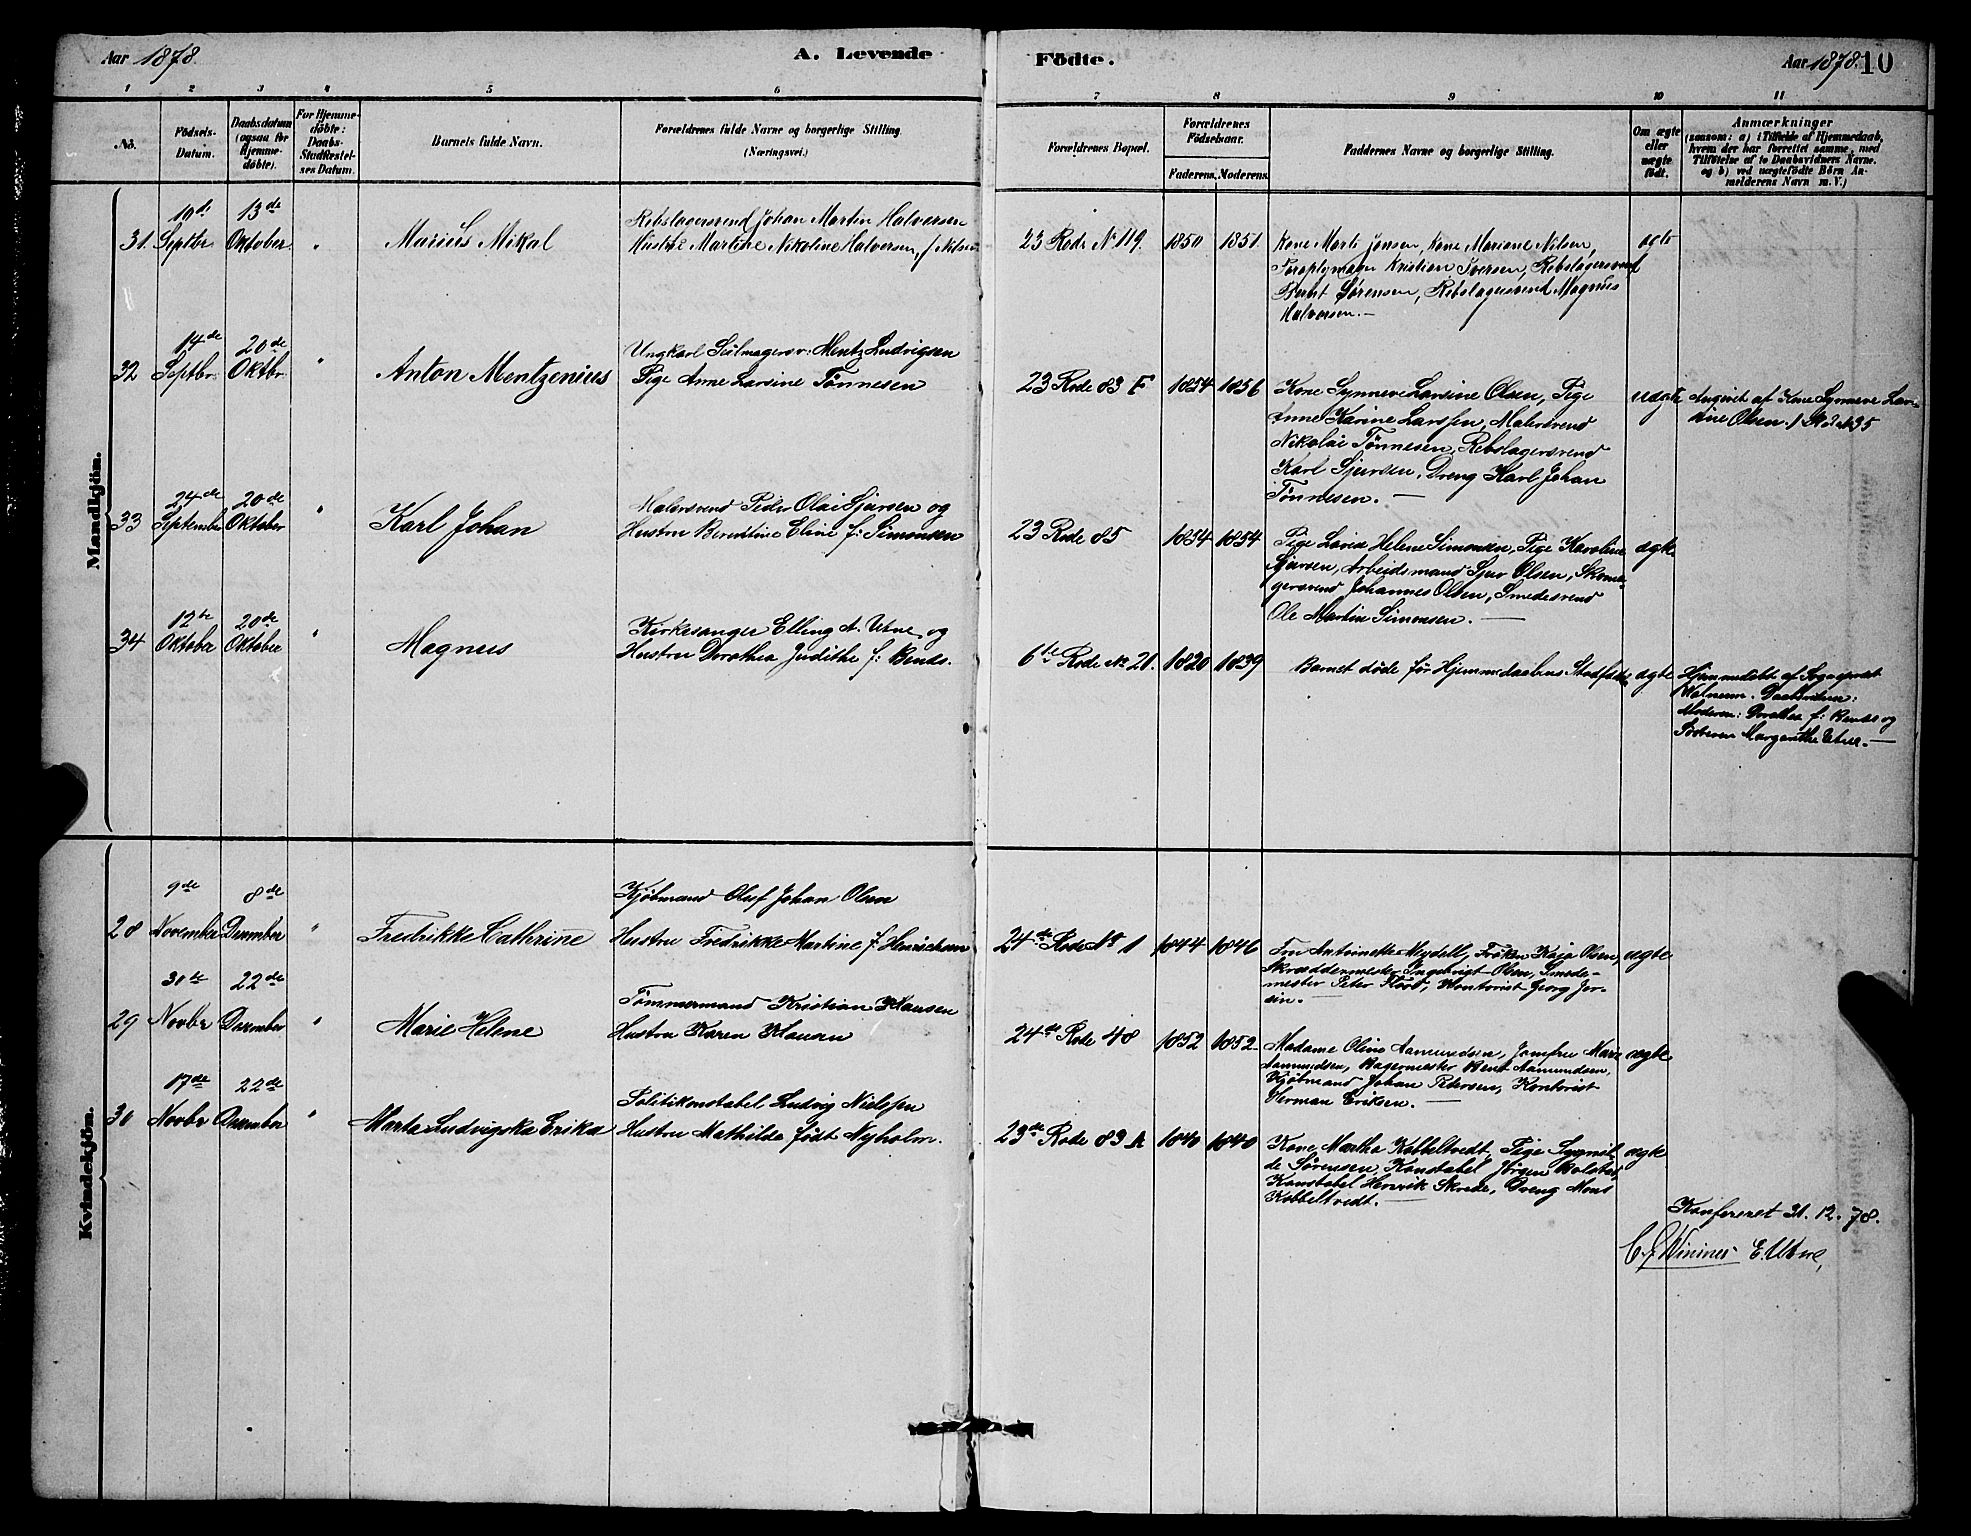 Aar 1878. A. Levende Födte. Aar 1878. 10
1 2 3 4 5 6 7 8 9 10 11
No. Födsels-Datum. Daabsdatum (ogsaa for Hjemmedöbte). For Hjemmedöbte: Daabs-Stadfæstelses Datum. Barnets fulde Navn. Forældrenes fulde Navne og borgerlige Stilling (Næringsvei.) Forældrenes Bopæl. Forældrenes Födselsaar. Faderens. Moderens. Faddernes Navne og borgerlige Stilling. Om ægte eller uægte födt.
Anmærkninger
(saasom: a) i Tilfælde af Hjemmedaab,
hvem der har forrettet samme, med
Tilföielse af to Daabsvidners Navne.
og b) ved uægtefödte Börn An-
melderens Navn m. V.)
Mandkjön.
19de 13de
31. Septbr. Oktober " Marius Mikal
Rebslagersvend Johan Martin Halversen
Hustru Martine Nikoline Halversen, f. Nilsen
23 Rode No 119. 1850 1851
Kone Marti Jensen, Kone Mariane Nilsen,
Kristian Iversen, Rebslagersvend
Berhst Sørensen, Rebslagersvend Magnus
Halversen.—
ægte
14de 20de
32 Septbr. Oktbr " Anton Mentzenius
Ungkarl Seilmagersv: Mentz Ludvigsen
Pige Anne Larsine Tönnesen
23 Rode 83 F 1854 1856
Kone Synneve Larsine Olsen, Pige
Anne Karine Larssen, Malersvend
Nikolai Tönnesen, Rebslagersvend
Karl Sjursen, Dreng Karl Johan
Tönnesen. —
uægte
Angivet af Kone Synneve Lar-
sine Olsen. 1 Rode No 35
24de 20de
33 September Oktober " Karl Johan
Malersvend Peder Olai Sjursen og
Hustru Berentine Eline f: Simonsen
23 Rode 85 1854 1854
Pige Lovise Helene Simonsen, Pige Karoline
Sjursen, Arbeidsmand Sjur Olsen, Skoma-
gersvend Johannes Olsen, Smedesvend
Ole Martin Simonsen. —
ægte
12te 20de
34 Oktober Oktober " Magnus
Kirkesanger Elling A. Utne og
Hustru Dorothea Judithe f: Bends.
6te Rode No 21. 1820 1839
Barnet døde før Hjemmedaabens Stadfæst.
ægte
Hjemmedøbt af Sogneprest
Daabsvidner:
Moderen: Dorothea f: Bends og
Søsteren Margarethe Utne.—
Kvindekjön.
9de 8de
28 November Dezember " Fredrikke Cathrine
Kjöbmand Oluf Johan Olsen
Hustru Fredrikke Martine f: Henrichsen
24de Rode No 1 1844 1846
Fru Antoinette Meydell, Frøken Kaja Olsen,
Skræddermester Ingebrigt Olsen, Smede-
mester Peter Flöod, Kontorist Georg Jer-
sin. —
ægte
30te 22de
29 Novbr Dezember " Marie Helene
Tömmermand Kristian Hansen
Hustru Karen Hansen
24de Rode 48 1852 1852
Madame Oline Aamundsen, Jomfru Marie
Aamundsen, Bagermester Bent Aamundsen,
Kjöbmand Johan Petersen, Kontorist
Herman Eriksen. —
ægte
17de 22de
30 Novbr Dezember " Marta Ludvigska Erika
Politikonstabel Ludvig Nielssen
Hustru Mathilde födt Nyholm.
23de Rode 83 A 1840 1840
Kone Martha Kobbeltvedt, Pige Synnöt-
de Sørensen, Konstabel Jörgen Bolstad,
Konstabel Henrik Skrede, Dreng Mons
Kobbeltvedt. —
ægte
Konfereret 31. 12. 78.
E. Utne,